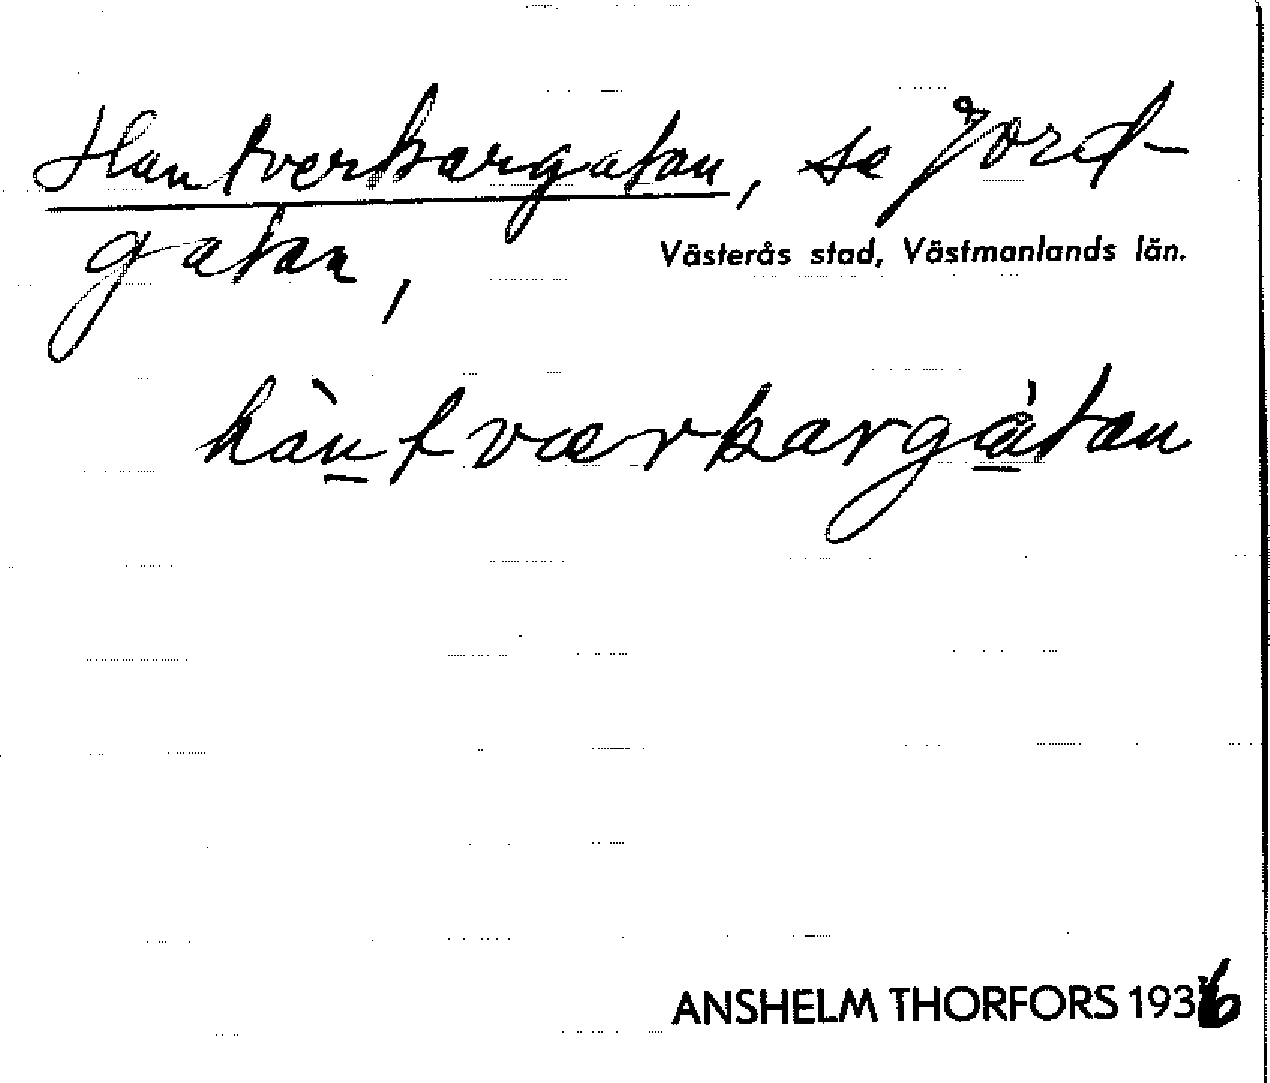 Hantverkargatan, se Jord-
gatan,
Västerås stad, Västmanlands län.
hàntværkargátan
ANSHELM THORFORS 1936